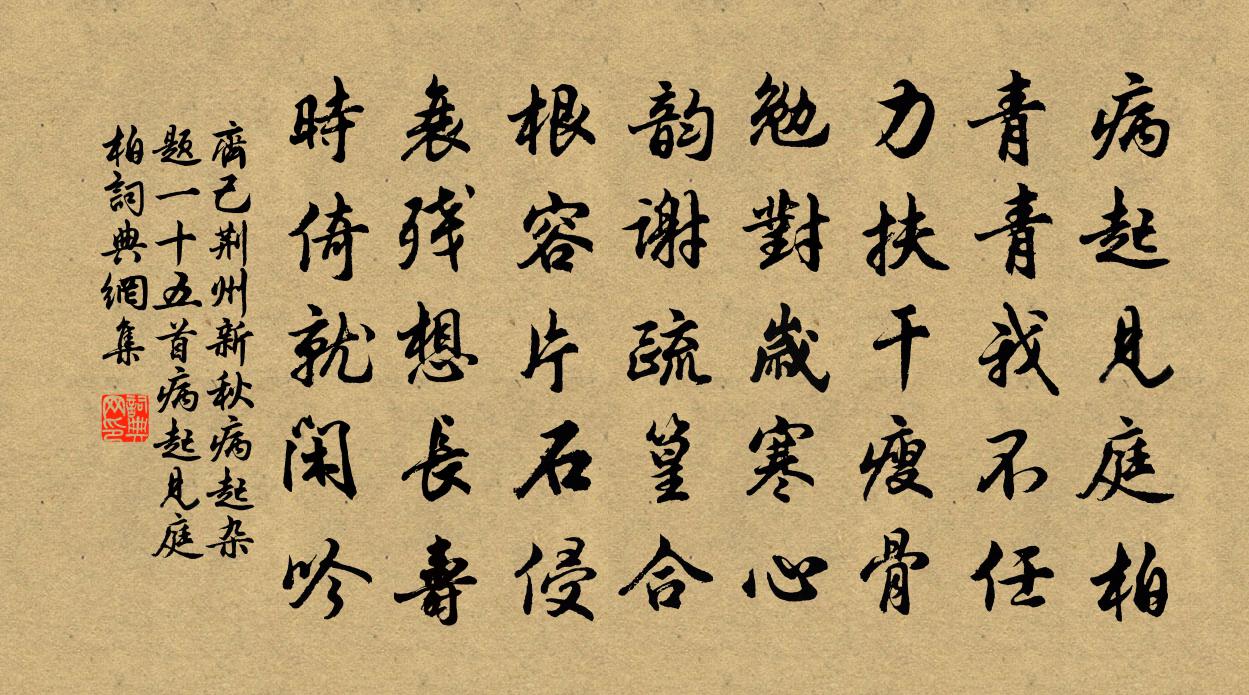 病起見庭柏
青青我不任
力扶干瘦骨
勉對歲寒心
韵謝疏篁合
根容片石侵
衰残想長壽
時倚就闲吟
齊己荆州新秋病起杂
题一十五首病起見庭
柏詞典網集
詞典
网印